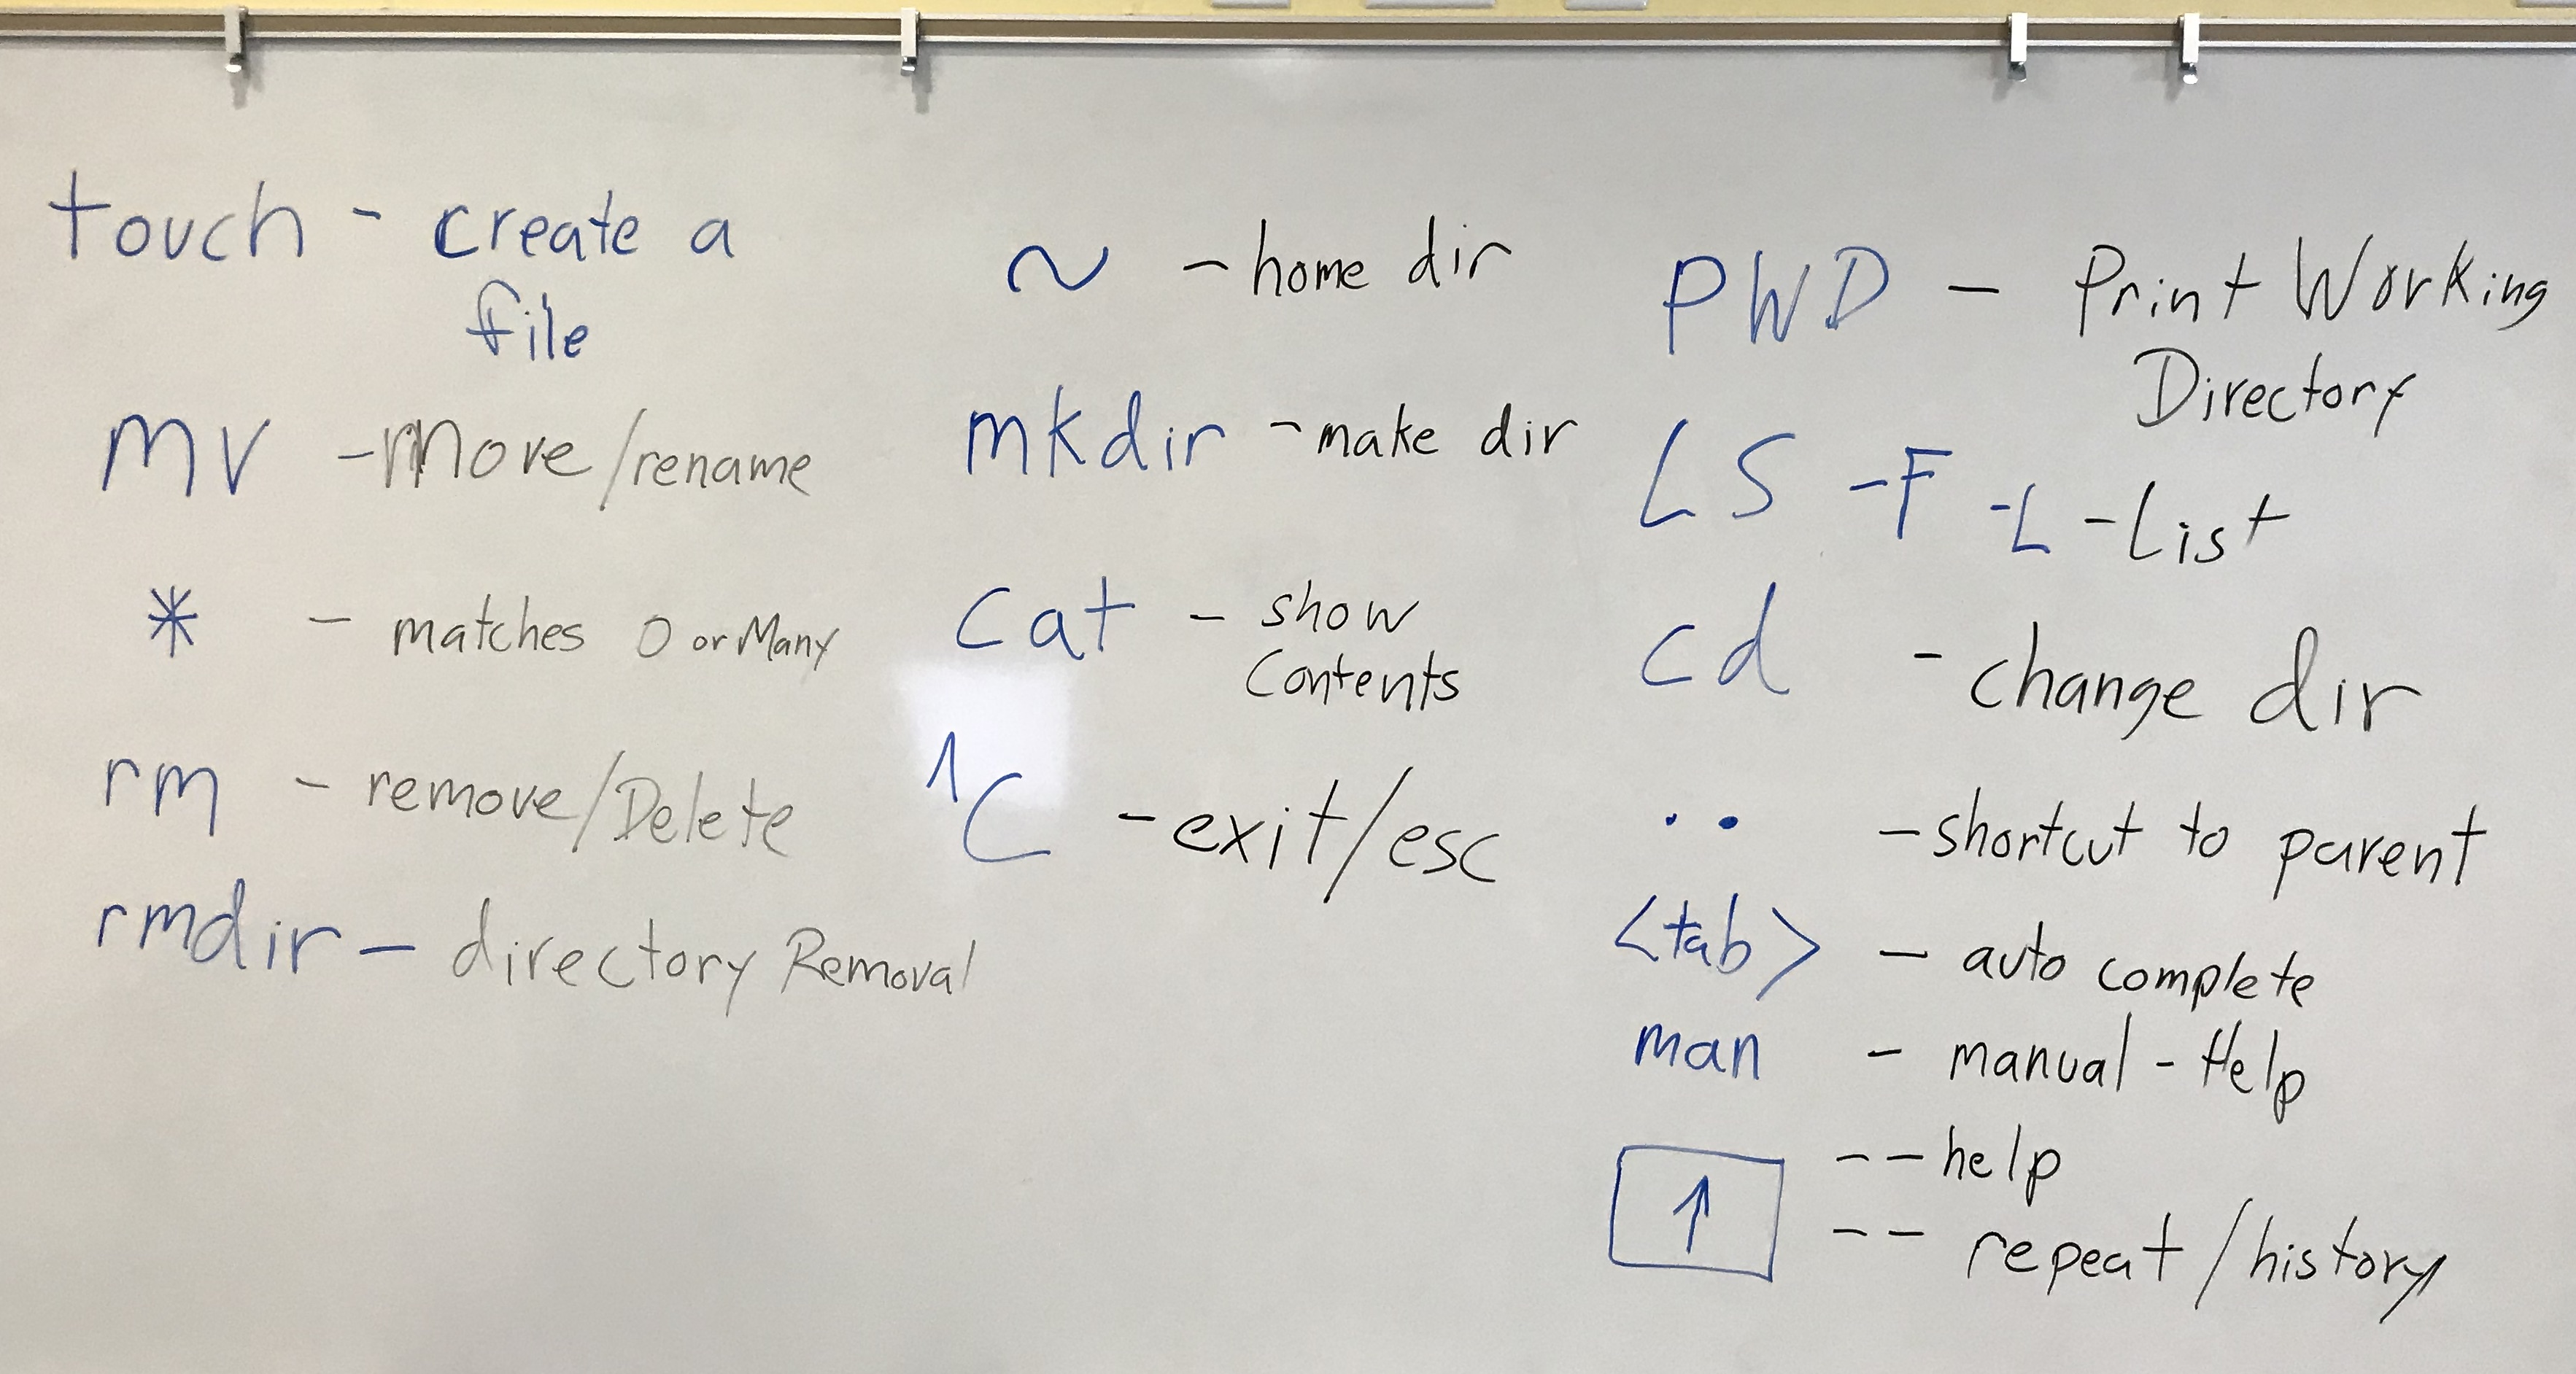 touch - create a
file
mv - move/rename
* - matches 0 or Many
rm - remove/Delete
rmdir - directory Removal
~ - home dir
mkdir - make dir
cat - show
contents
^C - exit/esc
PWD - Print Working
Directory
LS -F -L - List
cd - change dir
.. - shortcut to parent
<tab> - auto complete
man - manual - Help
--help
↑ -- repeat/history